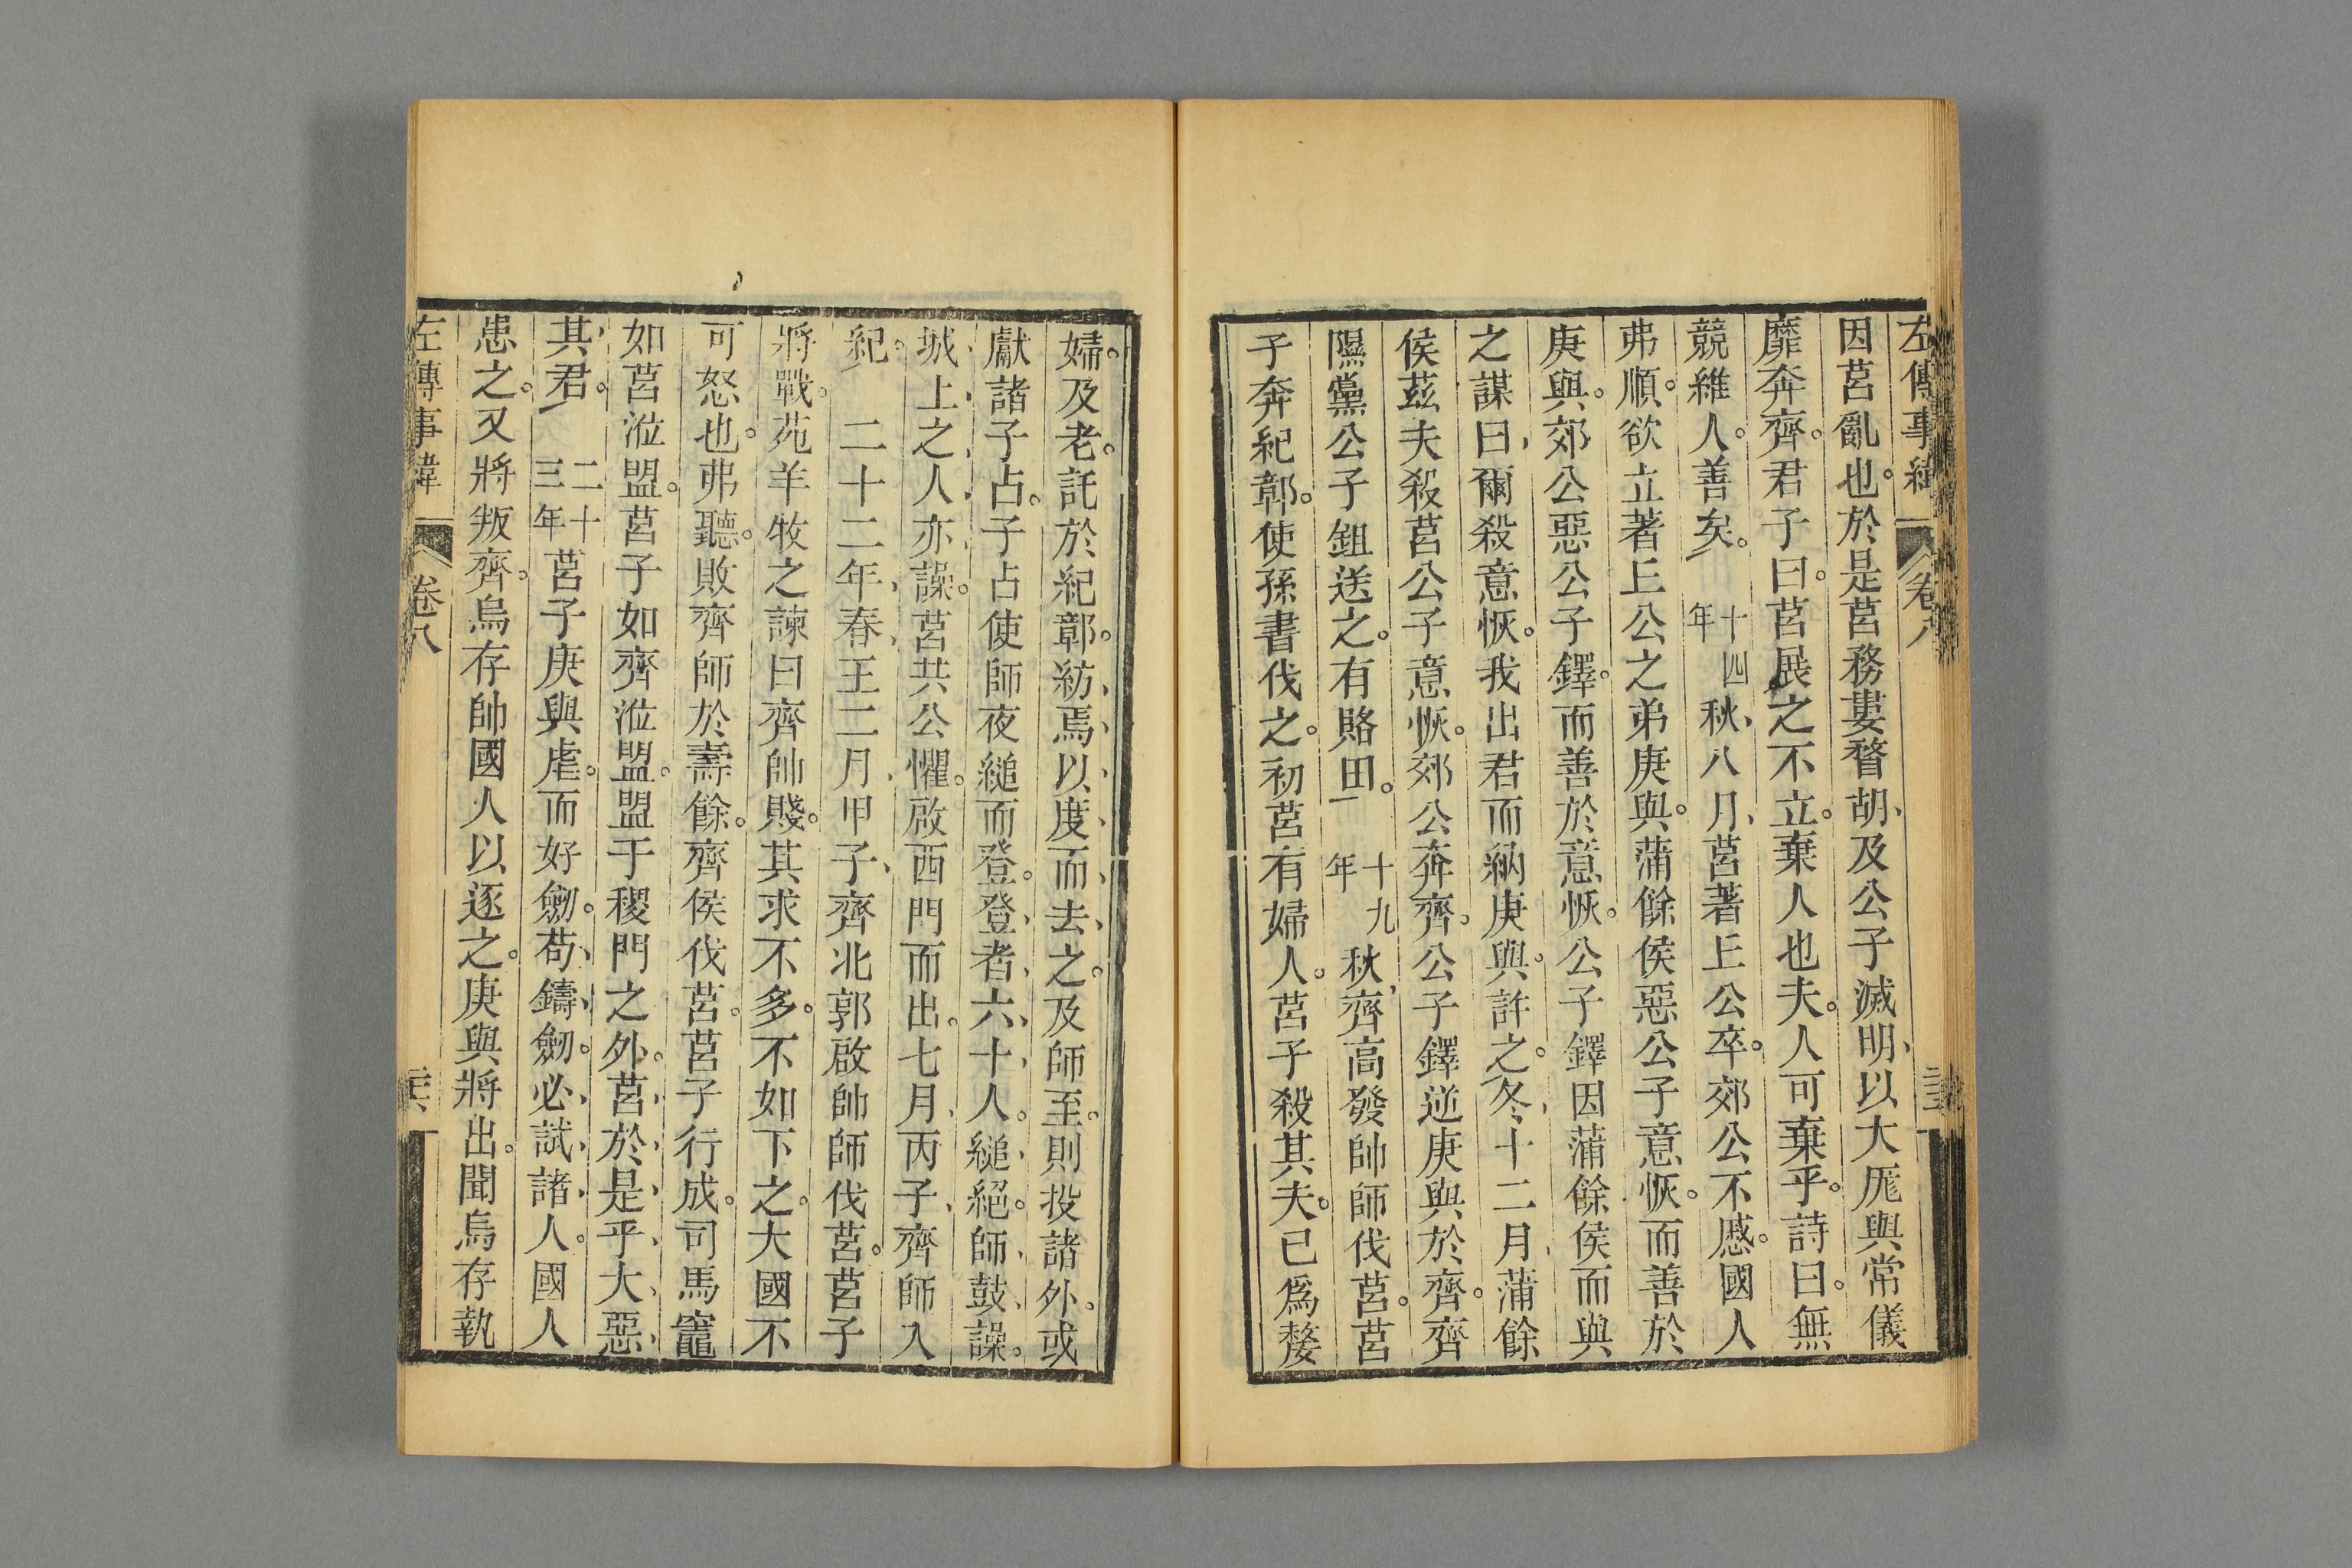 左傳事緯 卷八
因莒亂也。於是莒務婁瞀胡、及公子滅明、以大厖與常儀
靡奔齊。君子曰。莒展之不立。棄人也夫。人可棄乎。詩曰。無
競維人。善矣。十四年秋、八月、莒著丘公卒。郊公不慼。國人
弗順。欲立著丘公之弟庚與。蒲餘侯惡公子意恢。而善於
庚與。郊公惡公子鐸。而善於意恢。公子鐸因蒲餘侯而與
之謀曰、爾殺意恢。我出君而納庚與。許之。冬、十二月、蒲餘
侯茲夫殺莒公子意恢。郊公奔齊。公子鐸逆庚與於齊。齊
隰黨公子鉏送之。有賂田。十九年秋、齊高發帥師伐莒。莒
子奔紀鄣。使孫書伐之。初莒有婦人。莒子殺其夫。已爲嫠
婦。及老。託於紀鄣。紡焉、以度而去之。及師至。則投諸外。或
獻諸子占。子占使師夜縋而登。登者六十人。縋絕。師鼓譟。
城上之人亦譟。莒共公懼。啟西門而出。七月、丙子、齊師入
紀。二十二年、春、王二月、甲子、齊北郭啟帥師伐莒。莒子
將戰。苑羊牧之諫曰齊帥賤。其求不多。不如下之。大國不
可怒也。弗聽。敗齊師於壽餘。齊侯伐莒。莒子行成。司馬竈
如莒涖盟。莒子如齊涖盟。盟于稷門之外。莒於是乎大惡
其君。二十三年莒子庚與虐。而好劒。苟鑄劒。必試諸人。國人
患之。又將叛齊。烏存帥國人以逐之。庚與將出。聞烏存執
左傳事緯 卷八 三六